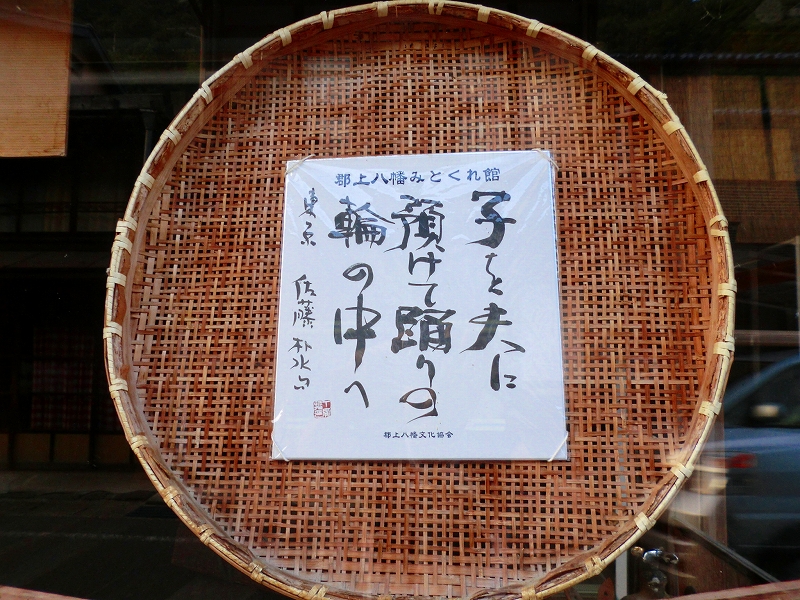 郡上八幡みとくれ館
子を夫に
預けて踊りの
輪の中へ
東京
佐藤
郡上八幡文化協会